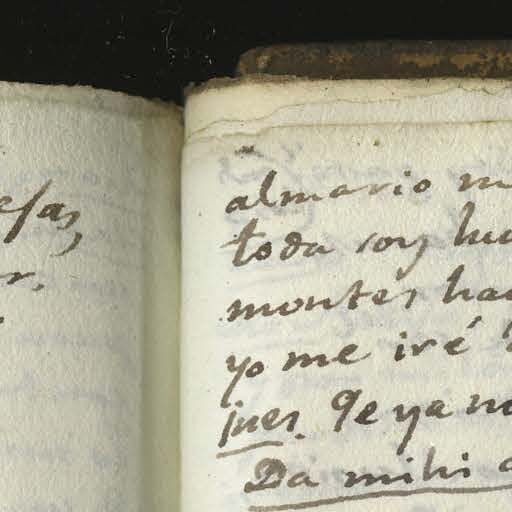 esas,
r.
almario m
toda soy lu
montes ha
yo me iré
jues. Qe ya no
Da mihi a